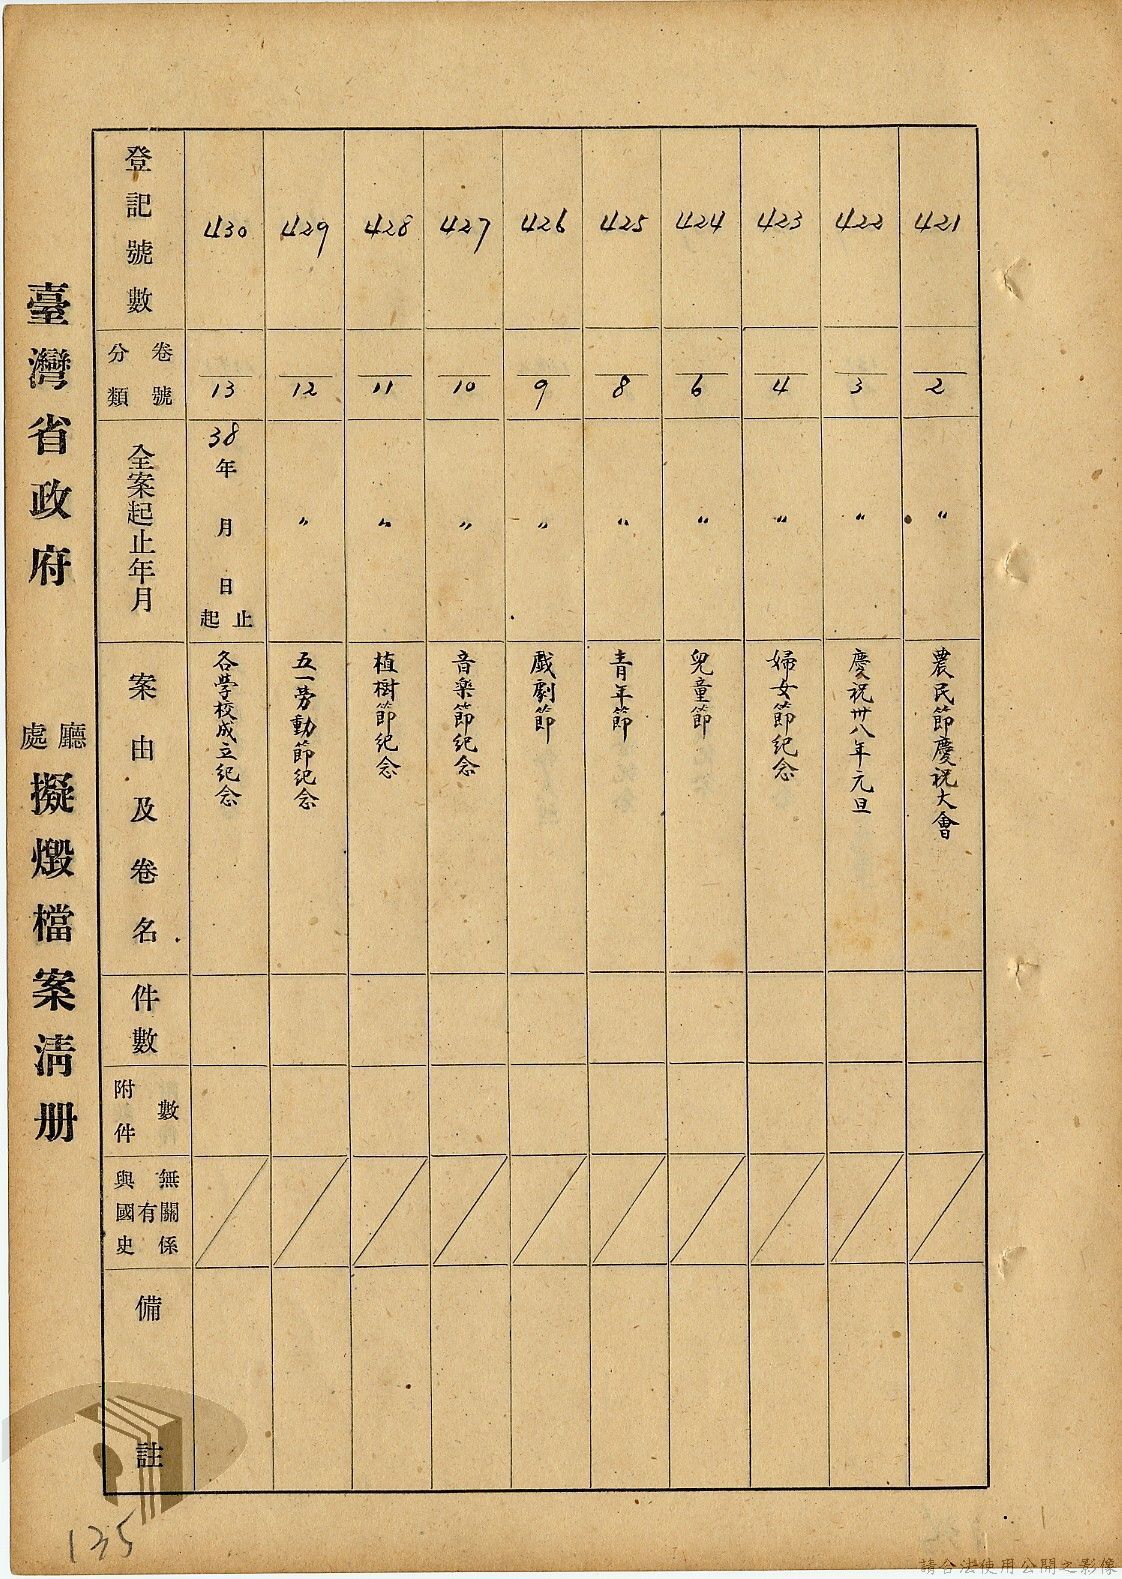 臺灣省政府 廳處 擬燬檔案清册
登記號數
分類 卷號
全案起止年月
案由及卷名
件數
附件數
與國史有無關係
備註
430
13
38年 月 日 起止
各學校成立紀念
429
12
〃
五一勞動節紀念
428
11
〃
植樹節紀念
427
10
〃
音樂節紀念
426
9
〃
戲劇節
425
8
〃
青年節
424
6
〃
兒童節
423
4
〃
婦女節紀念
422
3
〃
慶祝卅八年元旦
421
2
〃
農民節慶祝大會
135
請合法使用公開之影像